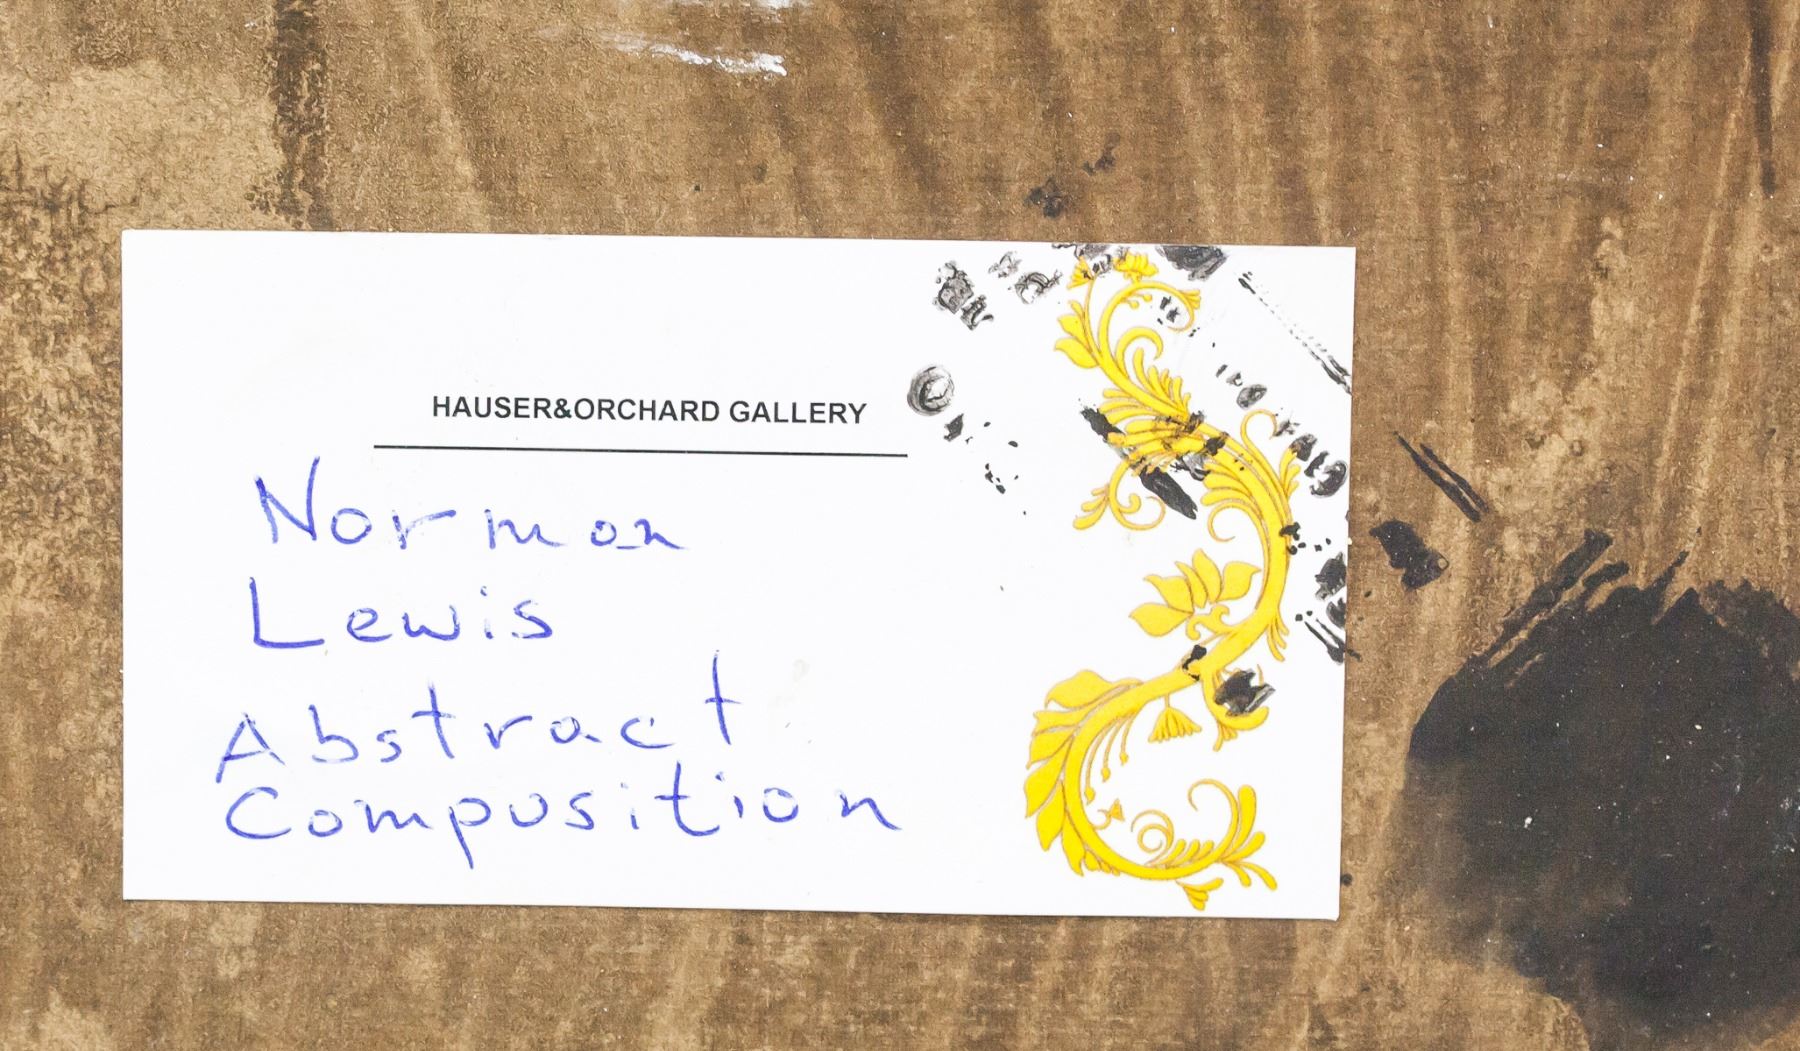 HAUSER&ORCHARD GALLERY
Norman
Lewis
Abstract
Composition